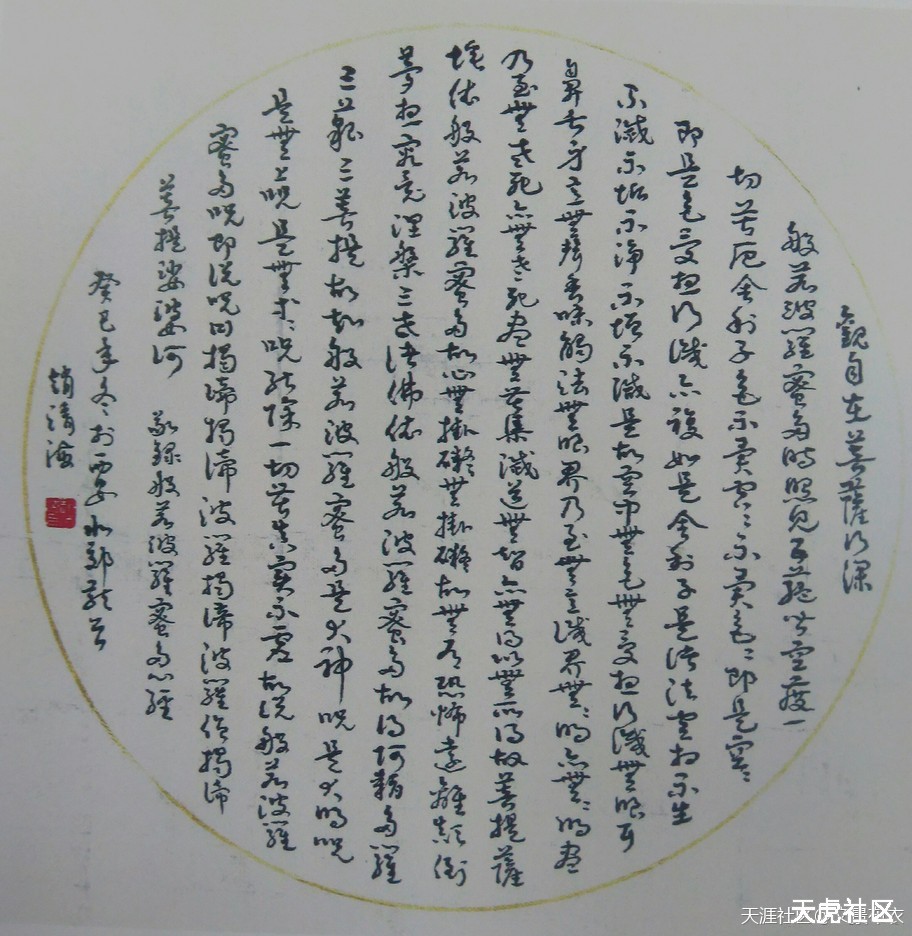 觀自在菩薩行深
般若波羅蜜多時照見五蘊皆空度一
切苦厄舍利子色不異空〻不異色〻即是空〻
即是色受想行識亦複如是舍利子是諸法空相不生
不滅不垢不淨不增不減是故空中無色無受想行識無眼耳
鼻舌身意無聲香味觸法無眼界乃至無意識界無〻明亦無〻明盡
乃至無老死亦無老死盡無苦集滅道無智亦無得以無所得故菩提薩
埵依般若波羅蜜多故心無掛礙無掛礙故無有恐怖遠離顛倒
夢想究竟涅槃三世諸佛依般若波羅蜜多故得阿耨多羅
三藐三菩提故知般若波羅蜜多是大神呪是大明呪
是無上呪是無等〻呪能除一切苦真實不虛故說般若波羅
蜜多呪即說呪曰揭諦揭諦波羅揭諦波羅僧揭諦
菩提娑婆訶 敬錄般若波羅蜜多心經
癸巳年冬〻於西安
趙清海
天涯社区
天虎社区